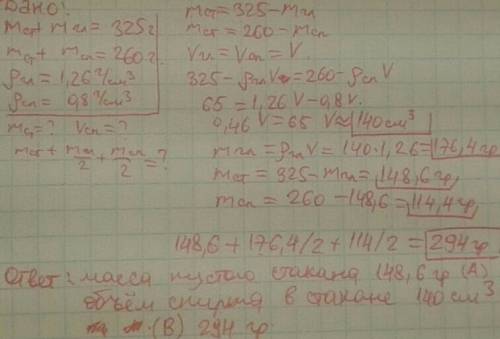 Дано:
mст + mгл = 325 г
mст + mсп = 260 г.
ρгл = 1,26 г/см³
ρсп = 0,8 г/см³
mст = ? Vсп = ?
mст + mгл/2 + mсп/2 = ?
mст = 325 - mгл
mст = 260 - mсп
Vгл = Vсп = V
325 - ρглV = 260 - ρспV
65 = 1,26V - 0,8V.
0,46V = 65 V ≈ 140 см³
mгл = ρглV = 140·1,26 = 176,4 гр
mст = 325 - mгл = 148,6 гр,
mсп = 260 - 148,6 = 114,4 гр,
148,6 + 176,4/2 + 114/2 = 294 гр
Ответ: масса пустого стакана 148,6 гр (А)
объём спирта в стакане 140 см³
(В) 294 гр